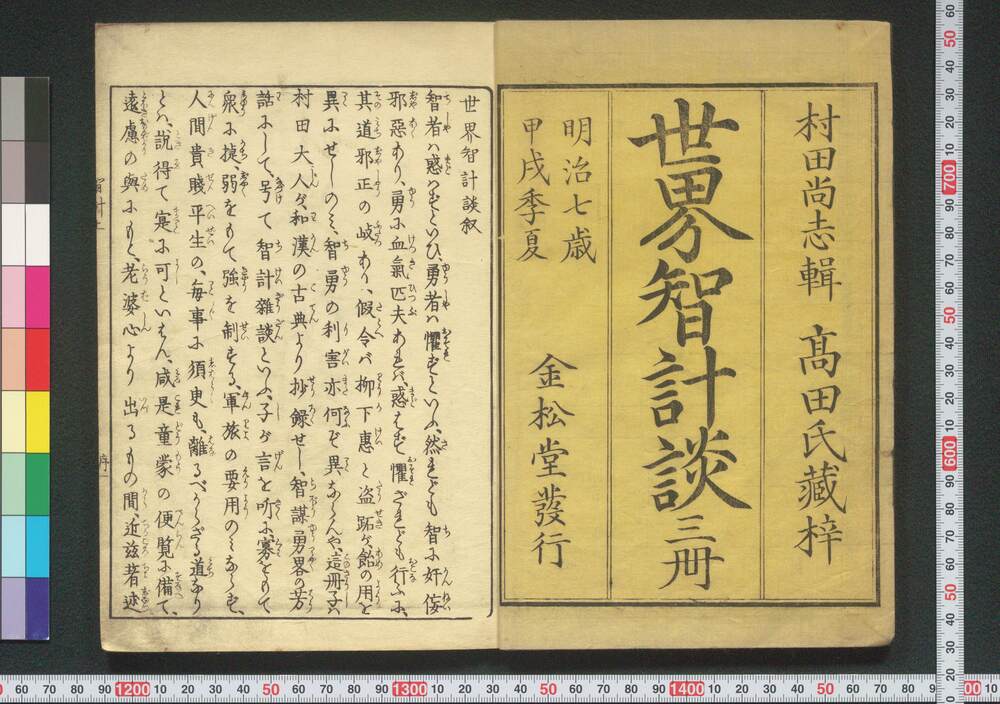 村田尚志輯 髙田氏藏梓
世界智計談 三冊
明治七歳
甲戌季夏
金松堂發行
世界智計談叙
智者ハ惑ハずといひ、勇者ハ懼ずといふ、然れども智に奸侫
邪惡あり、勇に血氣匹夫あれバ、惑はず懼ざれども行ふに、
其道邪正の岐あり、假令バ柳下惠と盗跖ヶ飴の用を
異にせしのミ、智勇の利害亦何ぞ異ならんや、這冊子ハ
村田大人ヶ和漢の古典より抄録せし、智謀勇畧の芳
話にして、号て智計雜談といふ、子ヶ言を听に寡をもて
衆に捷弱をもて強を制する、軍旅の要用のミならず、
人間貴賤平生の、毎事に須臾も、離るべからざる道なり
とハ、説得て寔に可といはん、咸是童蒙の便覧に備て、
遠慮の與にもと、老婆心より出るもの間、近茲著述